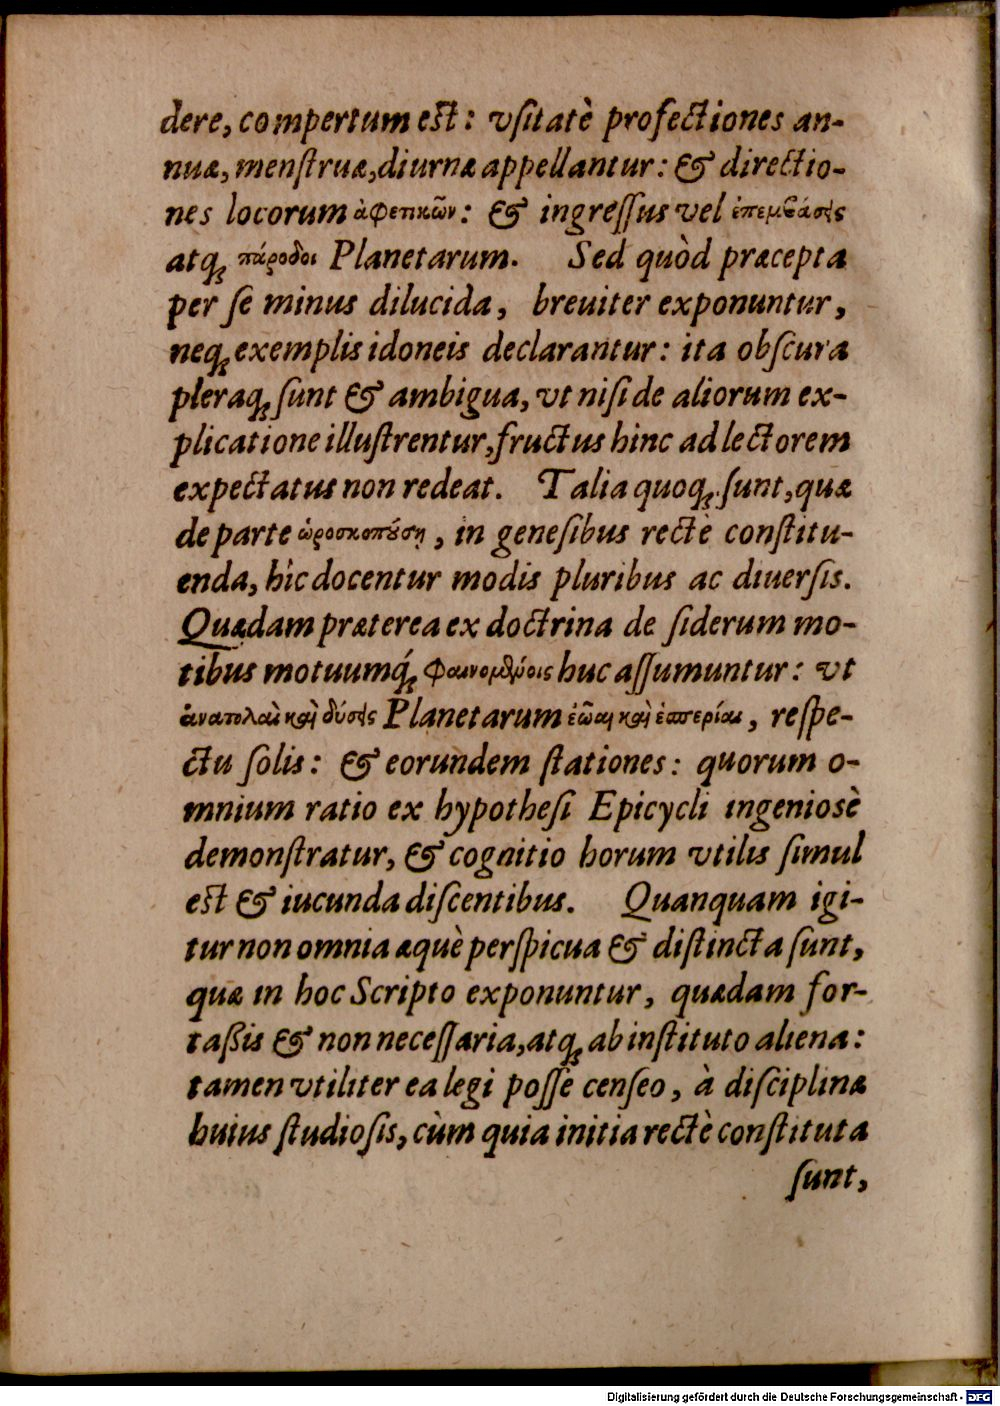 dere, compertum est: vſitatè profectiones an-
nuæ, menſtruæ, diurnæ appellantur: & directio-
nes locorum ἀφετικῶν: & ingreſſus vel ἐπεμβάσεις
atq; πάροδοι Planetarum. Sed quòd præcepta
per ſe minus dilucida, breuiter exponuntur,
neq; exemplis idoneis declarantur: ita obſcura
pleraq; ſunt & ambigua, vt niſi de aliorum ex-
plicatione illuſtrentur, fructus hinc ad lectorem
expectatus non redeat. Talia quoq; ſunt, quæ
de parte ὡροσκοπούσῃ, in geneſibus rectè conſtitu-
enda, hîc docentur modis pluribus ac diuerſis.
Quædam præterea ex doctrina de ſiderum mo-
tibus motuumq́; φαινομένοις huc aſſumuntur: vt
ἀνατολαὶ καὶ δύσεις Planetarum ἑῷαι καὶ ἑσπερίαι, reſpe-
ctu ſolis: & eorundem ſtationes: quorum o-
mnium ratio ex hypotheſi Epicycli ingeniosè
demonſtratur, & cognitio horum vtilis ſimul
est & iucunda diſcentibus. Quanquam igi-
tur non omnia æquè perſpicua & diſtincta ſunt,
quæ in hoc Scripto exponuntur, quædam for-
taßis & non neceſſaria, atq; ab inſtituto aliena:
tamen vtiliter ea legi poſſe cenſeo, à diſciplinæ
huius ſtudioſis, cùm quia initia rectè conſtituta
ſunt,
Digitalisierung gefördert durch die Deutsche Forschungsgemeinschaft - DFG